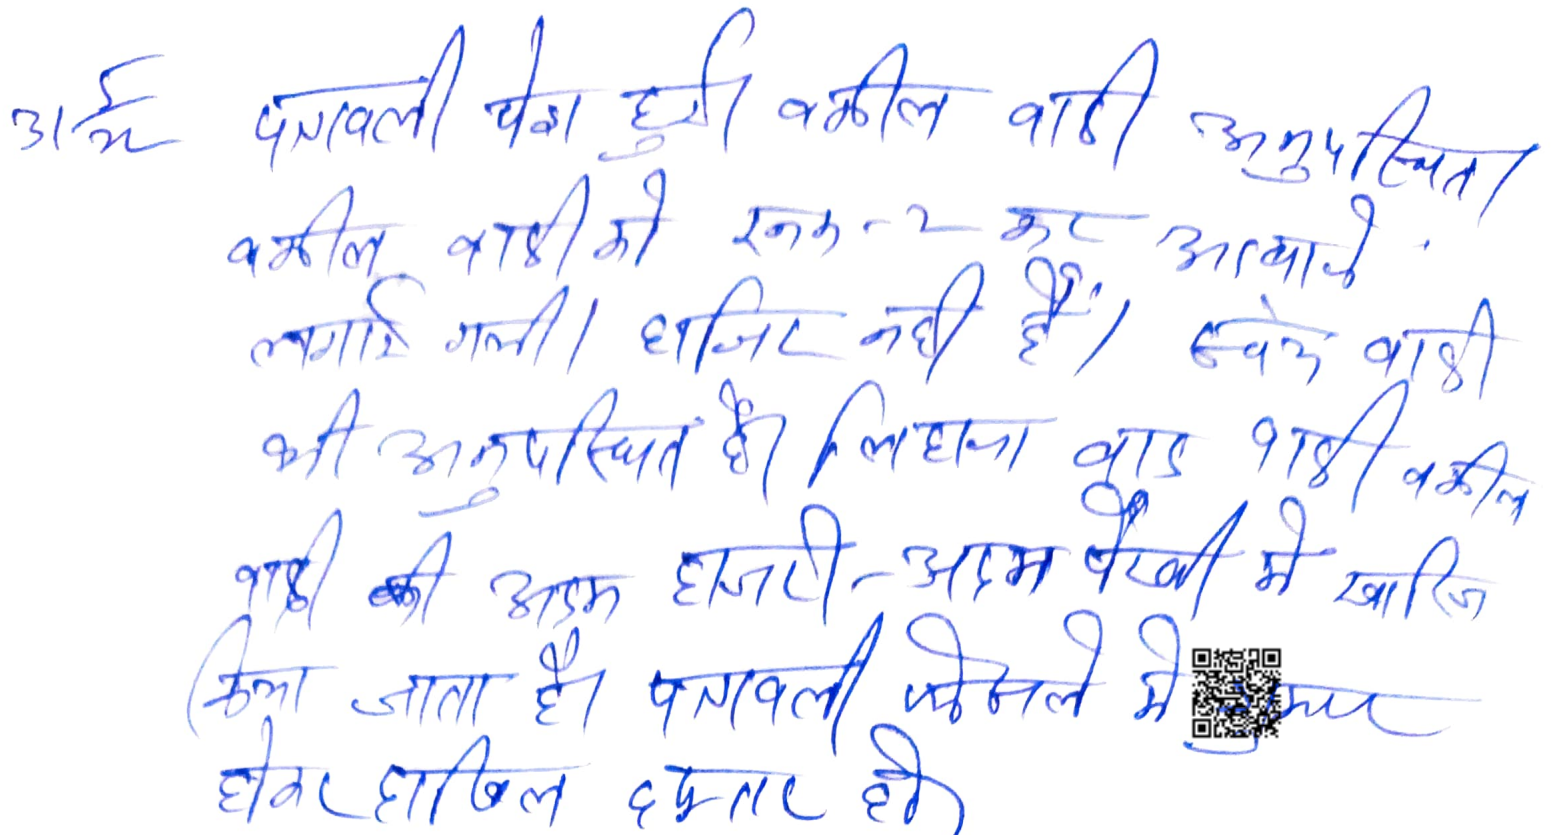 पत्रावली पेश हुई। वकील वादी अनुपस्थित।
वकील वादी को रुक-२ कर आवाजे
लगाई गयी। हाजिर नही है। स्वयं वादी
भी अनुपस्थित है। लिहाजा वाद वादी वकील
वादी की अदम हाजरी-अदम पैरवी मे खारिज
किया जाता है। पत्रावली फैसले मे शुमार
होकर दाखिल दफ्तर हो।